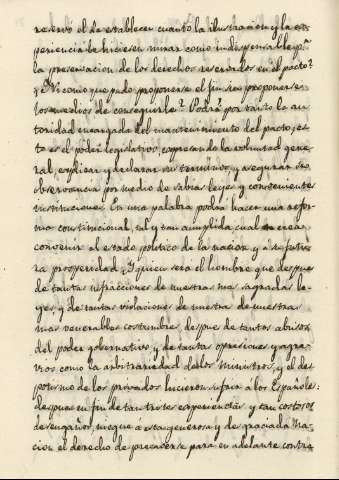 reservó el de establecer cuanto la ilustracion y la es-
periencia le hiciesen mirar como indispensable pª
la preservacion de los derechos reservados en el pacto?
y Ni como que pudo proponerse el fin sin proponerse
los medios de conseguirle? Podrá por tanto la au-
toridad encargada del mantenimiento del pacto, es-
to es el poder legislativo, expresando la voluntad gene-
ral, explicar y declarar sus terminos, y asegurar su
observancia por medio de sabias leyes y convenientes
instituciones. En una palabra podrá hacer una refor-
ma constitucional, tal y tan cumplida, cual crea
convenir al estado politico de la nacion y á su futu-
ra prosperidad. ¿Y quien será el hombre que despues
de tantas infracciones de nuestras mas sagradas le-
yes, y de tantas violaciones de nuestra de nuestras
mas venerables costumbres, despues de tantos abusos
del poder gobernativo y de tantas opresiones y agra-
vios como la arbitrariedad de los ministros, y el des-
potismo de los privados hicieron sufrir a los Españoles:
despues en fin de tan tristes esperiencias y tan costosos
desengaños, niegue a esta generosa y desgraciada Na-
cion el derecho de precaverse para en adelante contra